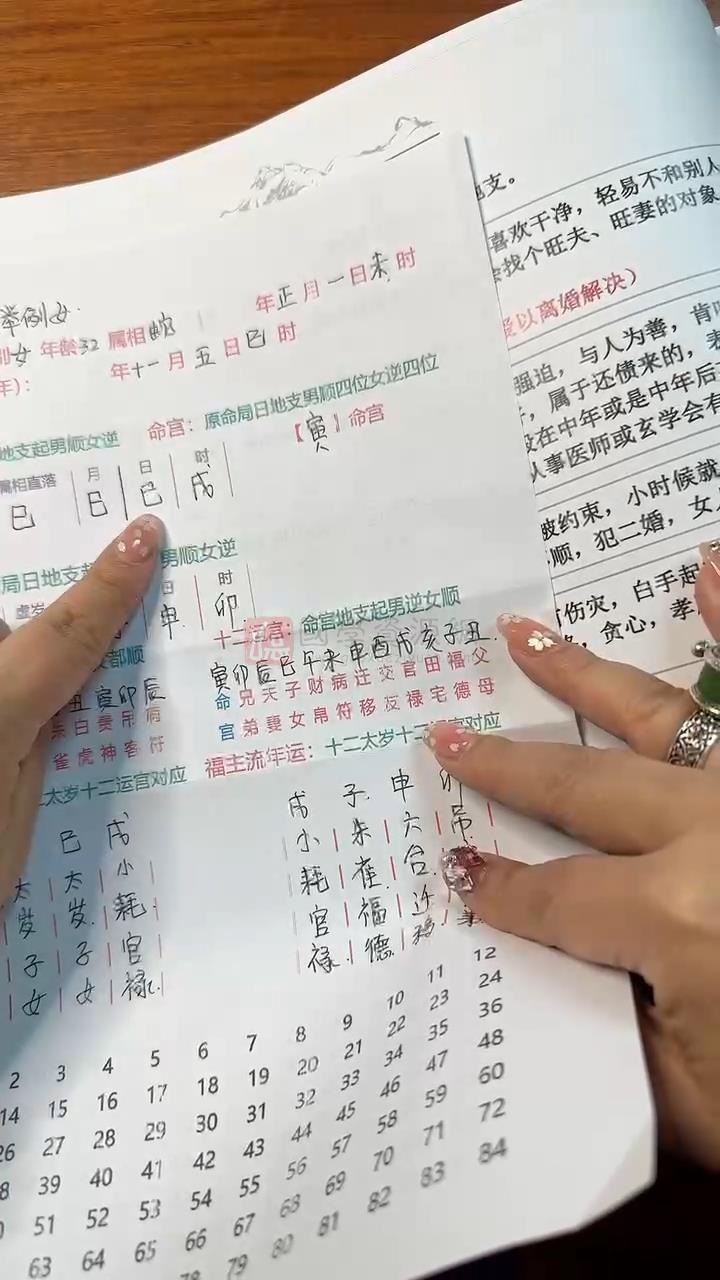 举例女
别女 年龄32 属相蛇 年正月一日未时
年): 年十一月五日巳时
地支起男顺女逆 命宫：原命局日地支男顺四位女逆四位
【寅】命宫
属相直落 月 日 时
巳 巳 巳 戌
局日地支起 男顺女逆
虚岁 日 时
申 卯
十二宫：命宫地支起男逆女顺
都顺
丑寅卯辰 寅卯辰巳午未申酉戌亥子丑
朱白贵吊病 命兄夫子财病迁交官田福父
雀虎神客符 官弟妻女帛符移友禄宅德母
太岁十二运宫对应 福主流年运：十二太岁十二运宫对应
巳 戌 戌 子 申 卯
太 太 小 小 朱 六 吊
岁 岁 耗 耗 雀 合
子 子 官 官 福 迁
女 女 禄 禄 德 移
2 3 4 5 6 7 8 9 10 11 12
14 15 16 17 18 19 20 21 22 23 24
26 27 28 29 30 31 32 33 34 35 36
8 39 40 41 42 43 44 45 46 47 48
51 52 53 54 55 56 57 58 59 60
63 64 65 66 67 68 69 70 71 72
78 79 80 81 82 83 84
支。
喜欢干净，轻易不和别人
找个旺夫、旺妻的对象
以离婚解决）
强迫，与人为善，肯
，属于还债来的，表
在中年或是中年后
人事医师或玄学会有
被约束，小时候就
顺，犯二婚，女
有伤灾，白手起
，贪心，孝